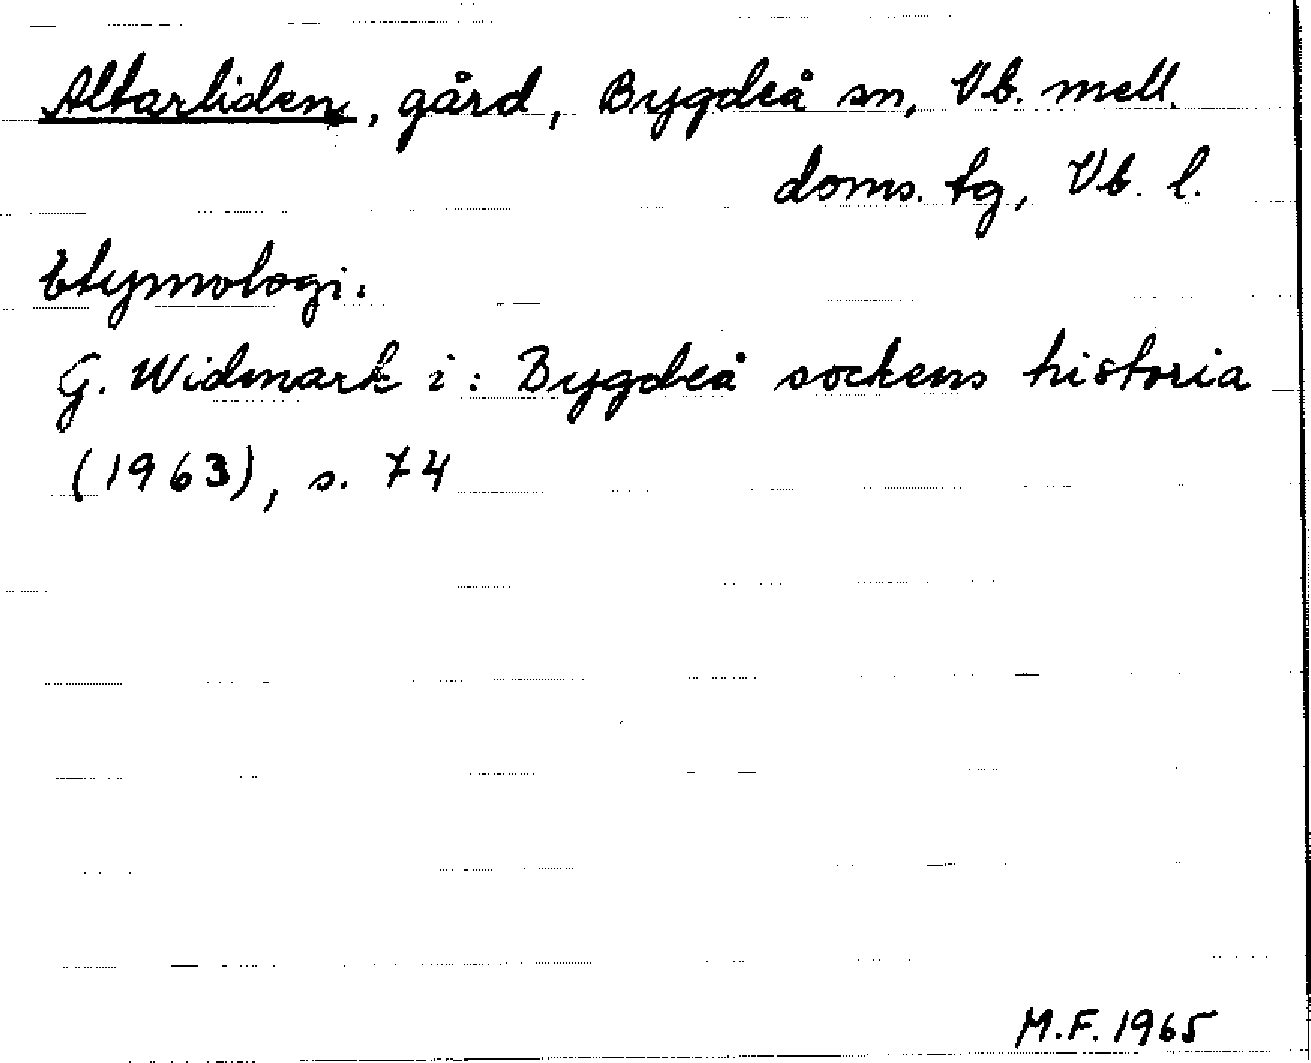 Altarliden, gård, Bygdeå sn, Vb. mell.
doms. tg, Vb. l.
Etymologi:
G. Widmark i: Bygdeå sockens historia
(1963), s. 74
M.F. 1965